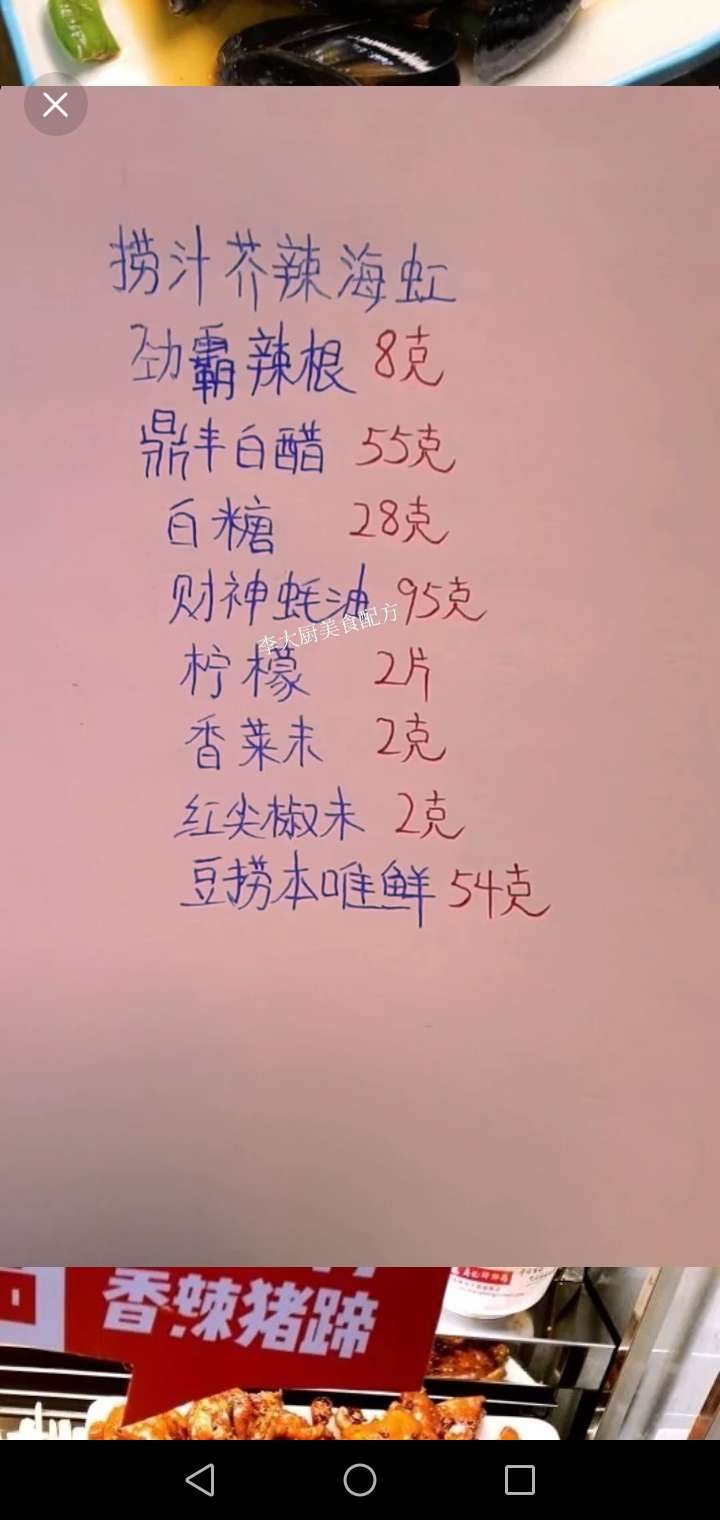 捞汁芥辣海虹
劲霸辣根 8克
鼎丰白醋 55克
白糖 28克
财神蚝油 95克
李大厨美食配方
柠檬 2片
香菜末 2克
红尖椒末 2克
豆捞本唯鲜 54克
香辣猪蹄